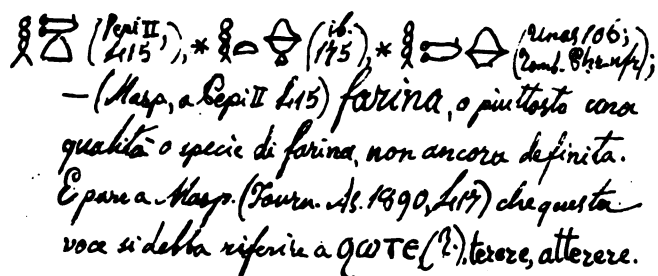 𓎛𓍿𓏐 (Pepi II, 415), * 𓎛𓏏𓏐 (ib. 175), * 𓎛𓍿𓏐 (Unas 106; Tomb. Ehr-nfr);
— (Masp, a Pepi II 415) farina, o piuttosto una
qualità o specie di farina, non ancora definita.
E pare a Masp. (Journ. As. 1890, 417) che questa
voce si debba riferire a ϨⲰⲦⲈ (?). terere, atterere.